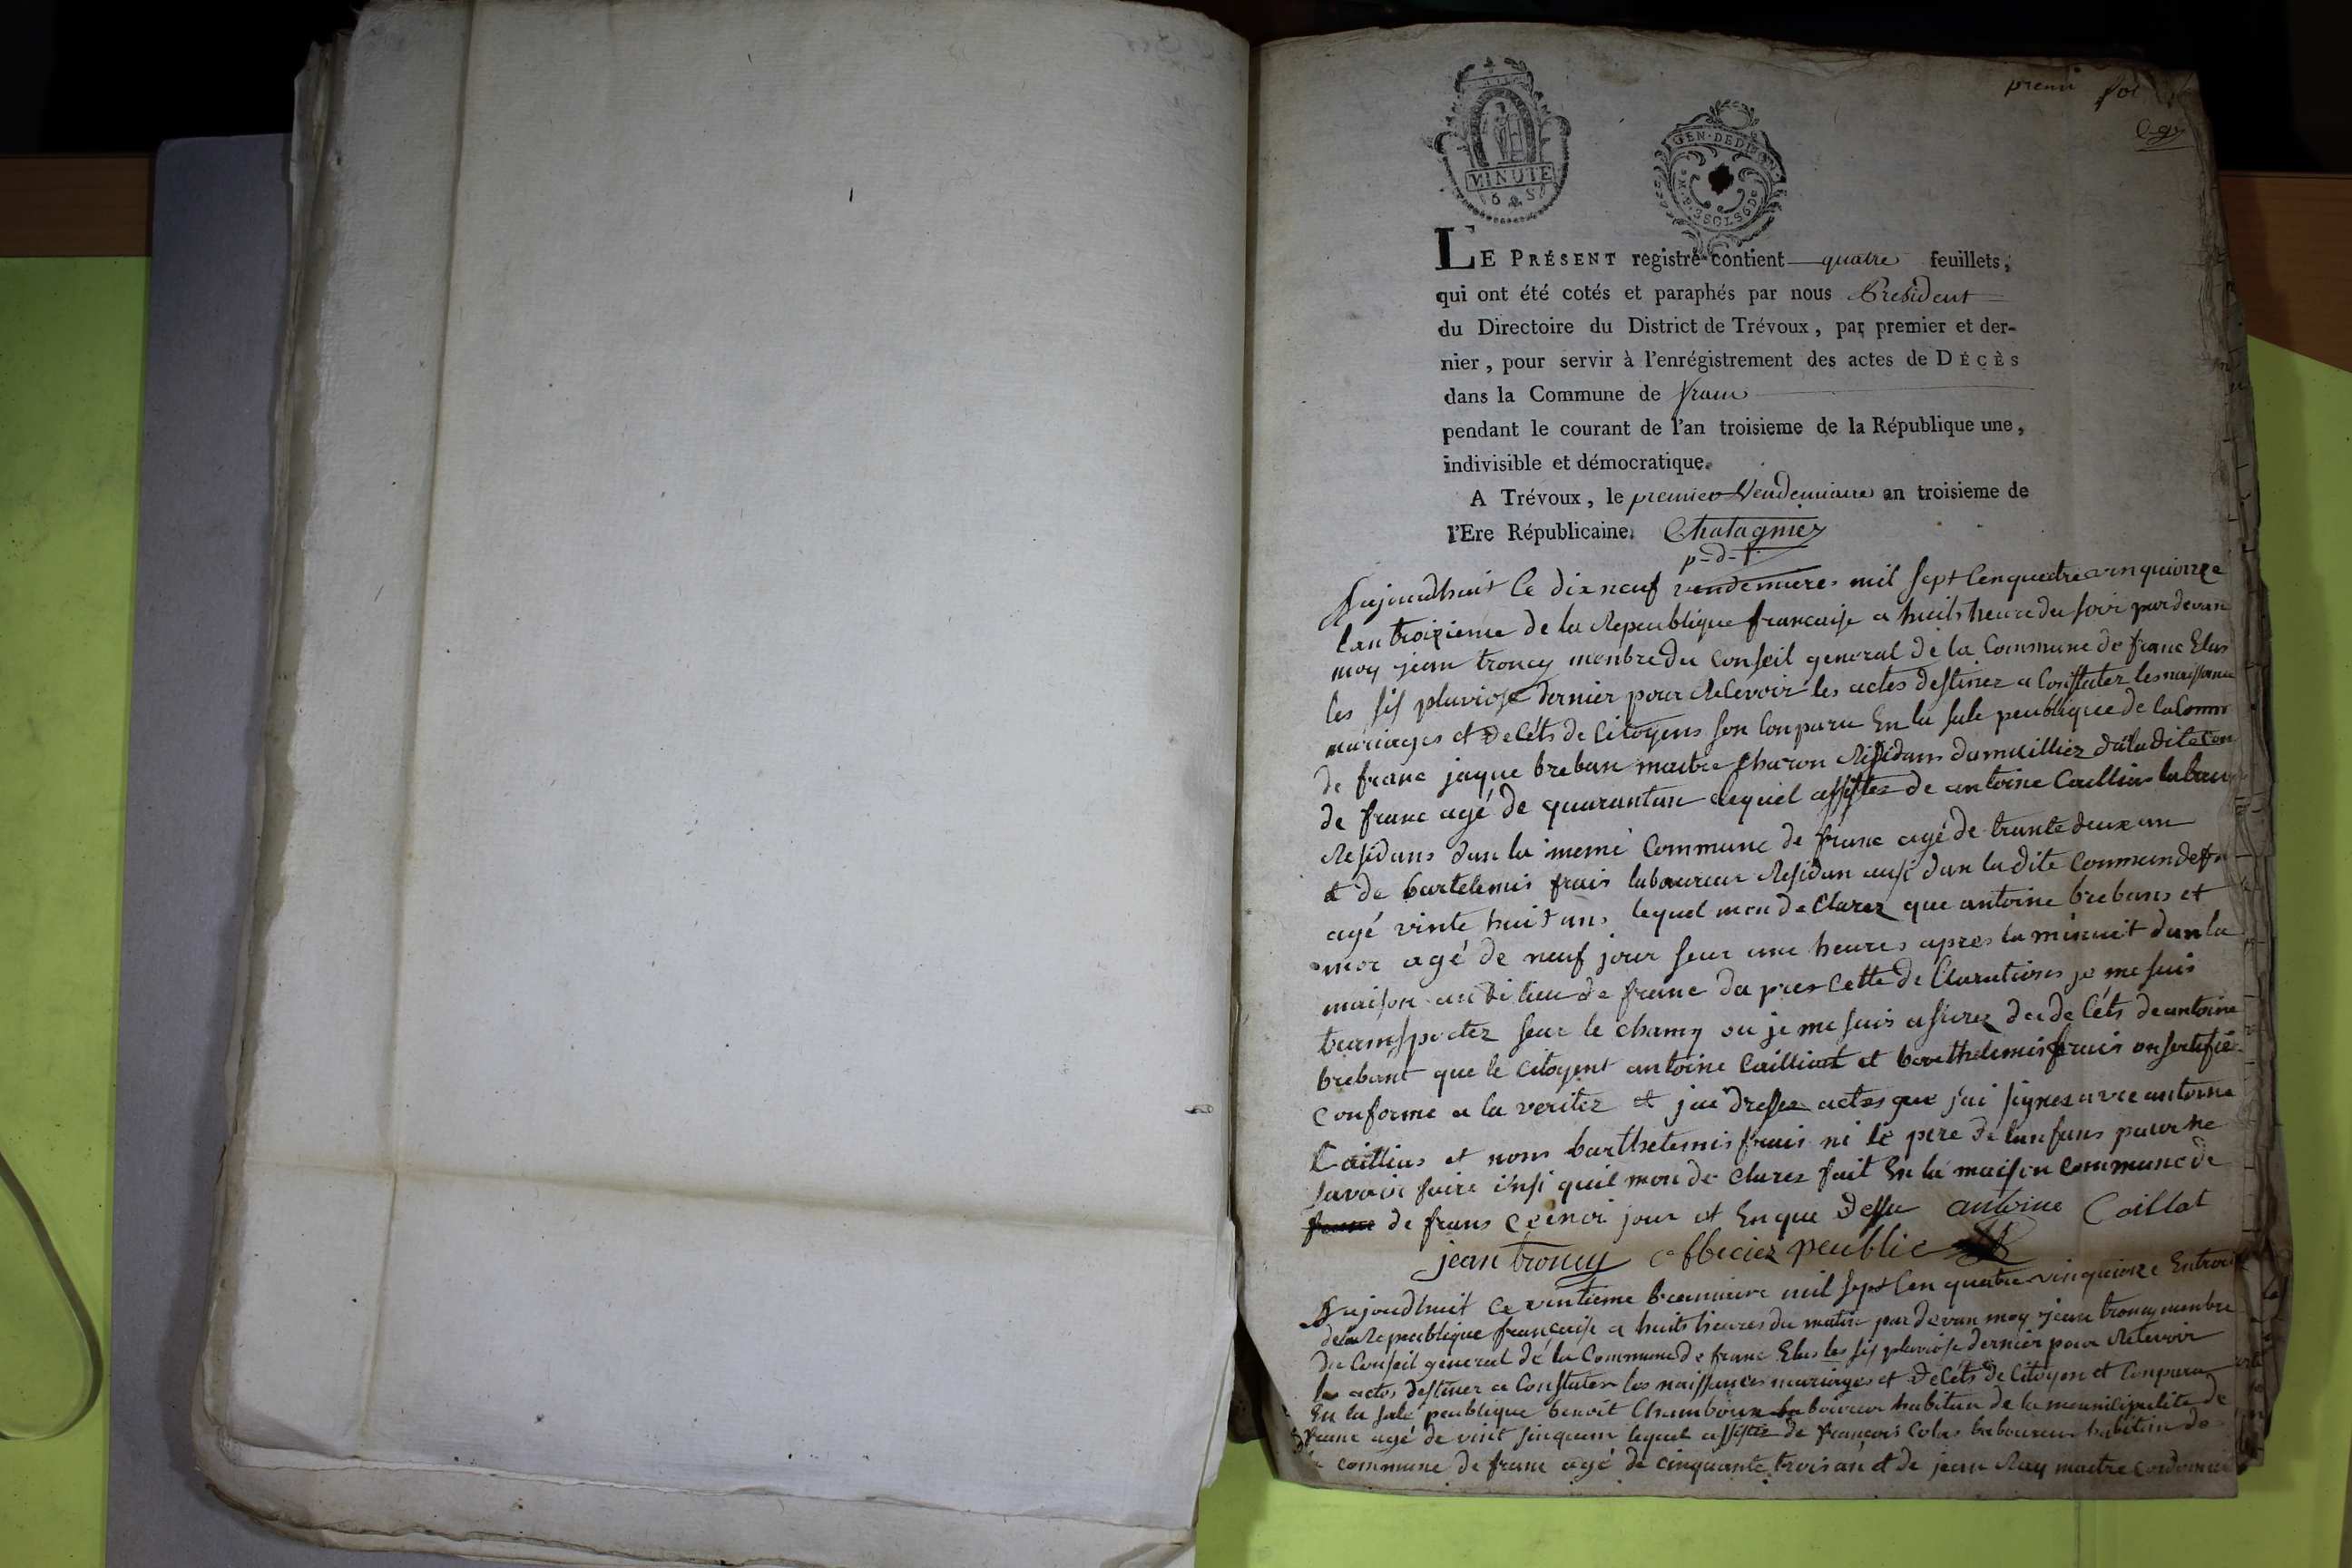 premi fol
MINUTE
6 S.
GEN. DE DI
LE PRÉSENT registre contient quatre feuillets,
qui ont été cotés et paraphés par nous President
du Directoire du District de Trévoux, par premier et der-
nier, pour servir à l'enrégistrement des actes de DÉCÈS
dans la Commune de frans
pendant le courant de l'an troisieme de la République une,
indivisible et démocratique.
A Trévoux, le premier Vendemiaire an troisieme de
l'Ere Républicaine. Chatagnier
p-d-t
Aujourdhuit Ce dix neuf vendemiere mil sept Cen quatre vin quinze
lan troizieme de la Republique francaise a huits heure du soir par devan
moy jean troncy menbre du Conseil general de la Commune de franc Elus
les sis pluviose dernier pour Recevoir les actes destinez a Constater les naissance
mariages et deCéts de Citoyens son Conparu En la sale peublique de la Comm
de franc jaque breban maitre Charon Residans da la dite Con
de franc agé de quarantan lequel assistez de antoine Caillias labour
Residans dan la meme Commune de franc agé de trante deux an
et de bartelemis frais laboureur Residan ausi dan la dite Commun de fr
agé vinte huit ans lequel mon deClarez que antoine brebans et
mor agé de neuf jour seur une heures apres la minuit dan la
maison au di lieu de franc da pres Cette deClarations je me suis
transportez seur le chamy ou je me suis asurez du deCéts de antoine
brebant que le Citoyent antoine Cailliat et barthelemis frais on sertifié
Conforme a la veritez et jai dressez actes que j'ai signez avec antoine
Caillias et nons barthelemis frais ni le pere de lanfans pour ne
savoir faire insi quil mon de Clarez fait En la maison Commune de
de frans jour et En que dessu antoine Caillat
jean troncy officiez peublic
Aujourdhuit Ce vintieme breumaire mil sept Cen quatre vin quinze Entroi
de la Republique francaise a huits heures du matin par devan moy jean troncy menbre
du Conseil general de la Commune de franc Elus les sis pluviose dernier pour Recevoir
les actes destinez a Constater les naissances mariages et deCéts de Citoyen et Conparu
En la sale peublique benoit laboureur habitan de la meunicipalite de
franc agé de vint sinquan lequel assistez de francois Colas laboureur habitan de
la commune de franc agé de cinquante trois an et de jean Ray maitre Cordonnier